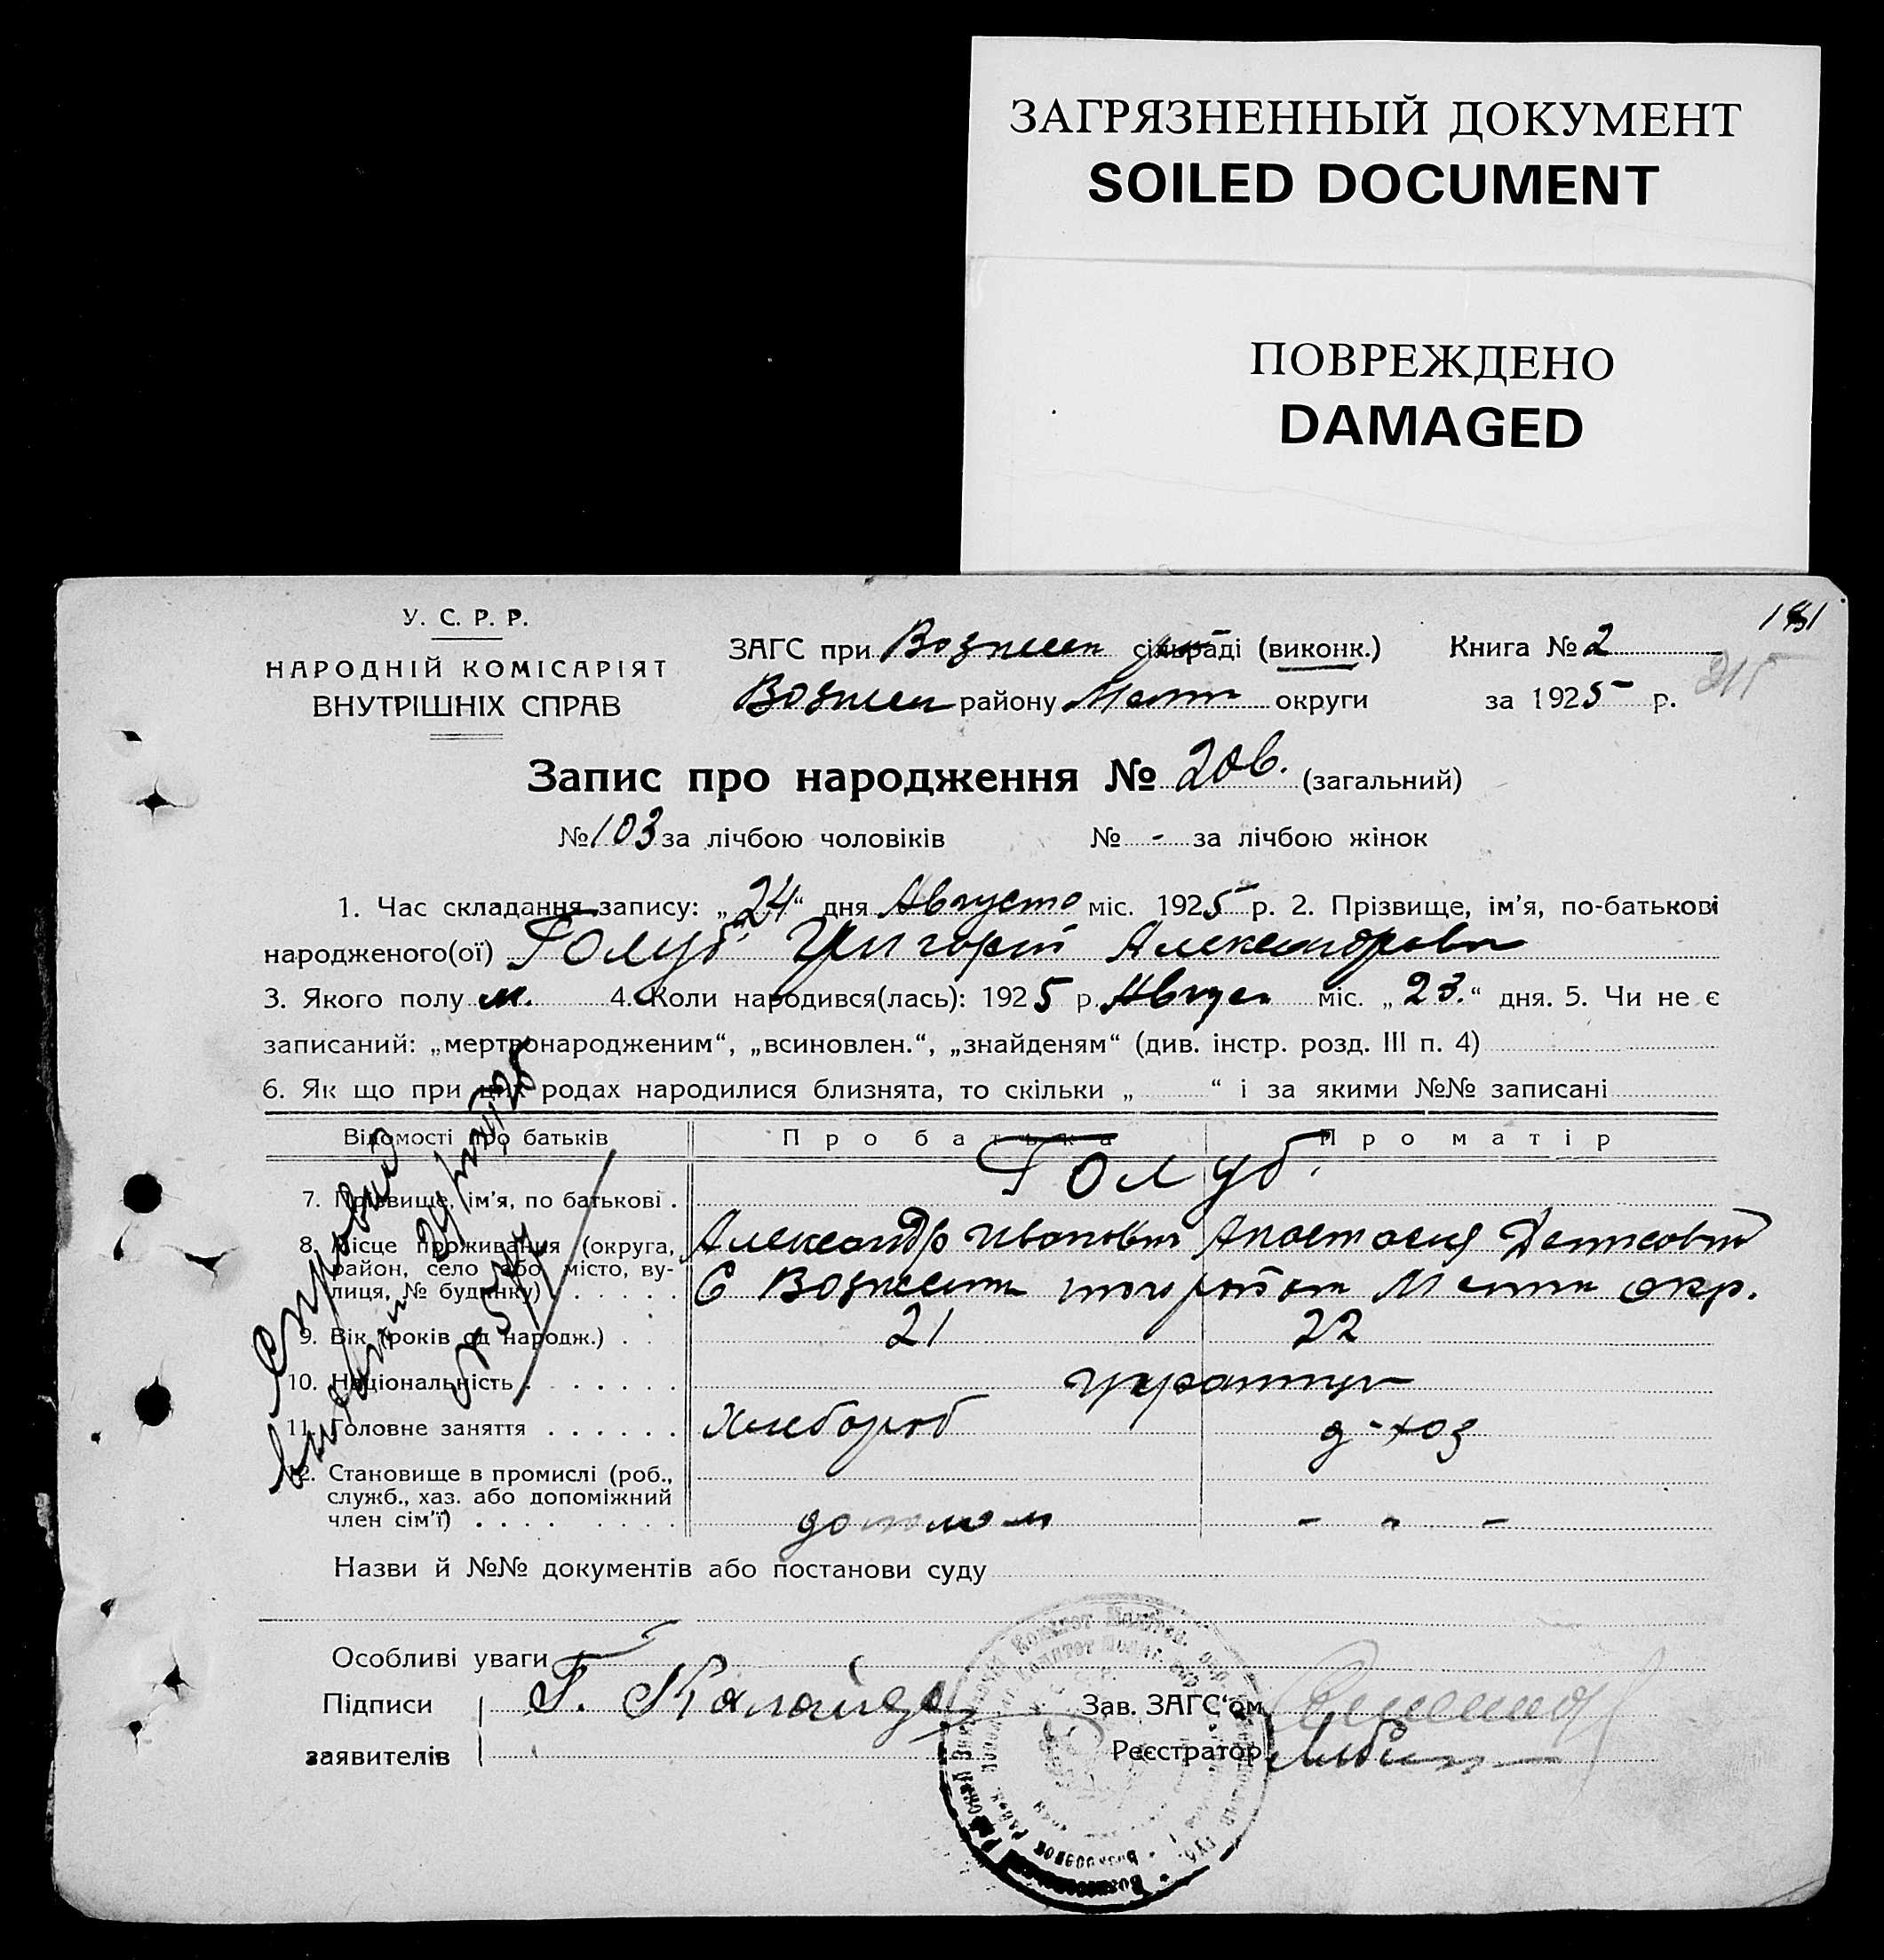 ЗАГРЯЗНЕННЫЙ ДОКУМЕНТ
SOILED DOCUMENT
ПОВРЕЖДЕНО
DAMAGED
181
У. С. Р. Р.
НАРОДНІЙ КОМІСАРІЯТ
ВНУТРІШНІХ СПРАВ
ЗАГС при Вознесен сільраді (виконк.) Книга № 2
215
Вознесен району Мелит округи за 1925 р.
Запис про народження № 206. (загальний)
№ 103 за лічбою чоловіків № - за лічбою жінок
1. Час складання запису: „24“ дня Августа міс. 1925 р. 2. Прізвище, ім’я, по-батькові
народженого(ої) Голуб Григорій Александрович
3. Якого полу м. 4. Коли народився(лась): 1925 р. Август міс. „23.“ дня. 5. Чи не є
записаний: „мертвонародженим“, „всиновлен.“, „знайденям“ (див. інстр. розд. III п. 4)
6. Як що при цих родах народилися близнята, то скільки „ “ і за якими №№ записані
Відомості про батьків Про батька Про матір
7. Прізвище, ім’я, по батькові . Голуб
8. Місце проживання (округа, Александр Иванович Анастасия Денисовна
район, село або місто, ву-
лиця, № будинку) . . . . . С Вознесенка Мелит окр.
9. Вік (років од народж.) . . 21 22
10. Національність . . . . . . . украинцы
11. Головне заняття . . . . . . Хлебороб д-хоз
12. Становище в промислі (роб.,
служб., хаз. або допоміжний
член сім’ї) . . . . . . . . - - -
Назви й №№ документів або постанови суду
Особливі уваги
Підписи Г. Калайда Зав. ЗАГС‘ом
заявителів Реєстратор